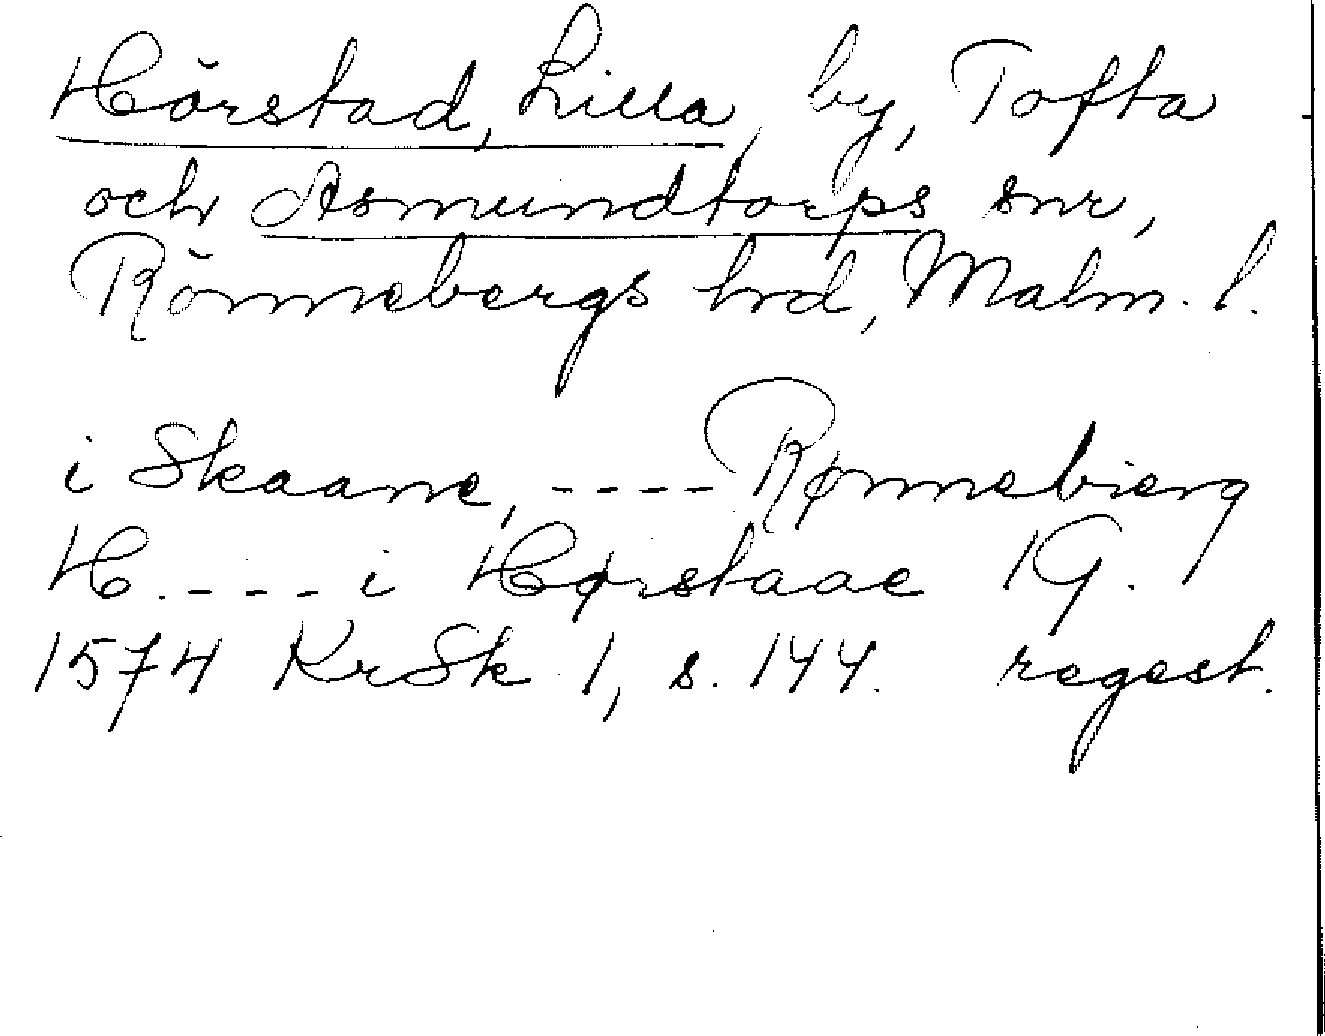 Hörstad, Lilla, by, Tofta
och Asmundtorps snr,
Rönnebergs hrd, Malm. l.
i Skaane, ---- Rønnebierg
H. ---- i Hørstaae 1G.
1574 KrSk 1, s. 144. regest.